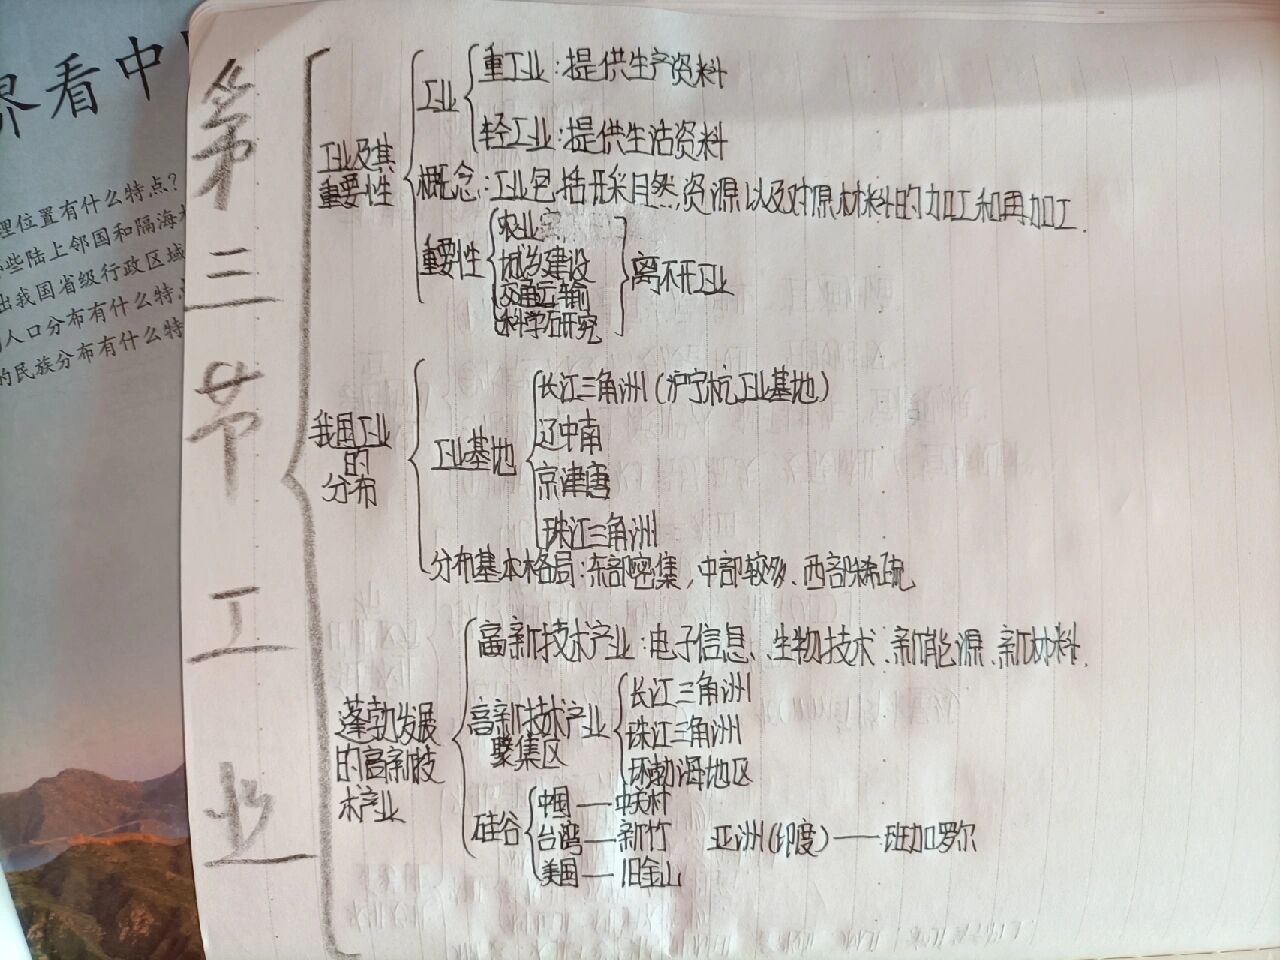 界看中
理位置有什么特点？
些陆上邻国和隔海
出我国省级行政区域
人口分布有什么特
的民族分布有什么特
第三节 工业
工业及其
重要性
工业
重工业：提供生产资料
轻工业：提供生活资料
概念：工业包括开采自然资源以及对原材料的加工和再加工.
重要性
农业
城乡建设
交通运输
科学研究
离不开工业
我国工业
的
分布
工业基地
长江三角洲（沪宁杭工业基地）
辽中南
京津唐
珠江三角洲
分布基本格局：东部密集，中部较多、西部稀疏
蓬勃发展
的高新技
术产业
高新技术产业：电子信息、生物技术、新能源、新材料.
高新技术产业
聚集区
长江三角洲
珠江三角洲
环渤海地区
硅谷
中国——中关村
台湾——新竹 亚洲（印度）——班加罗尔
美国——旧金山